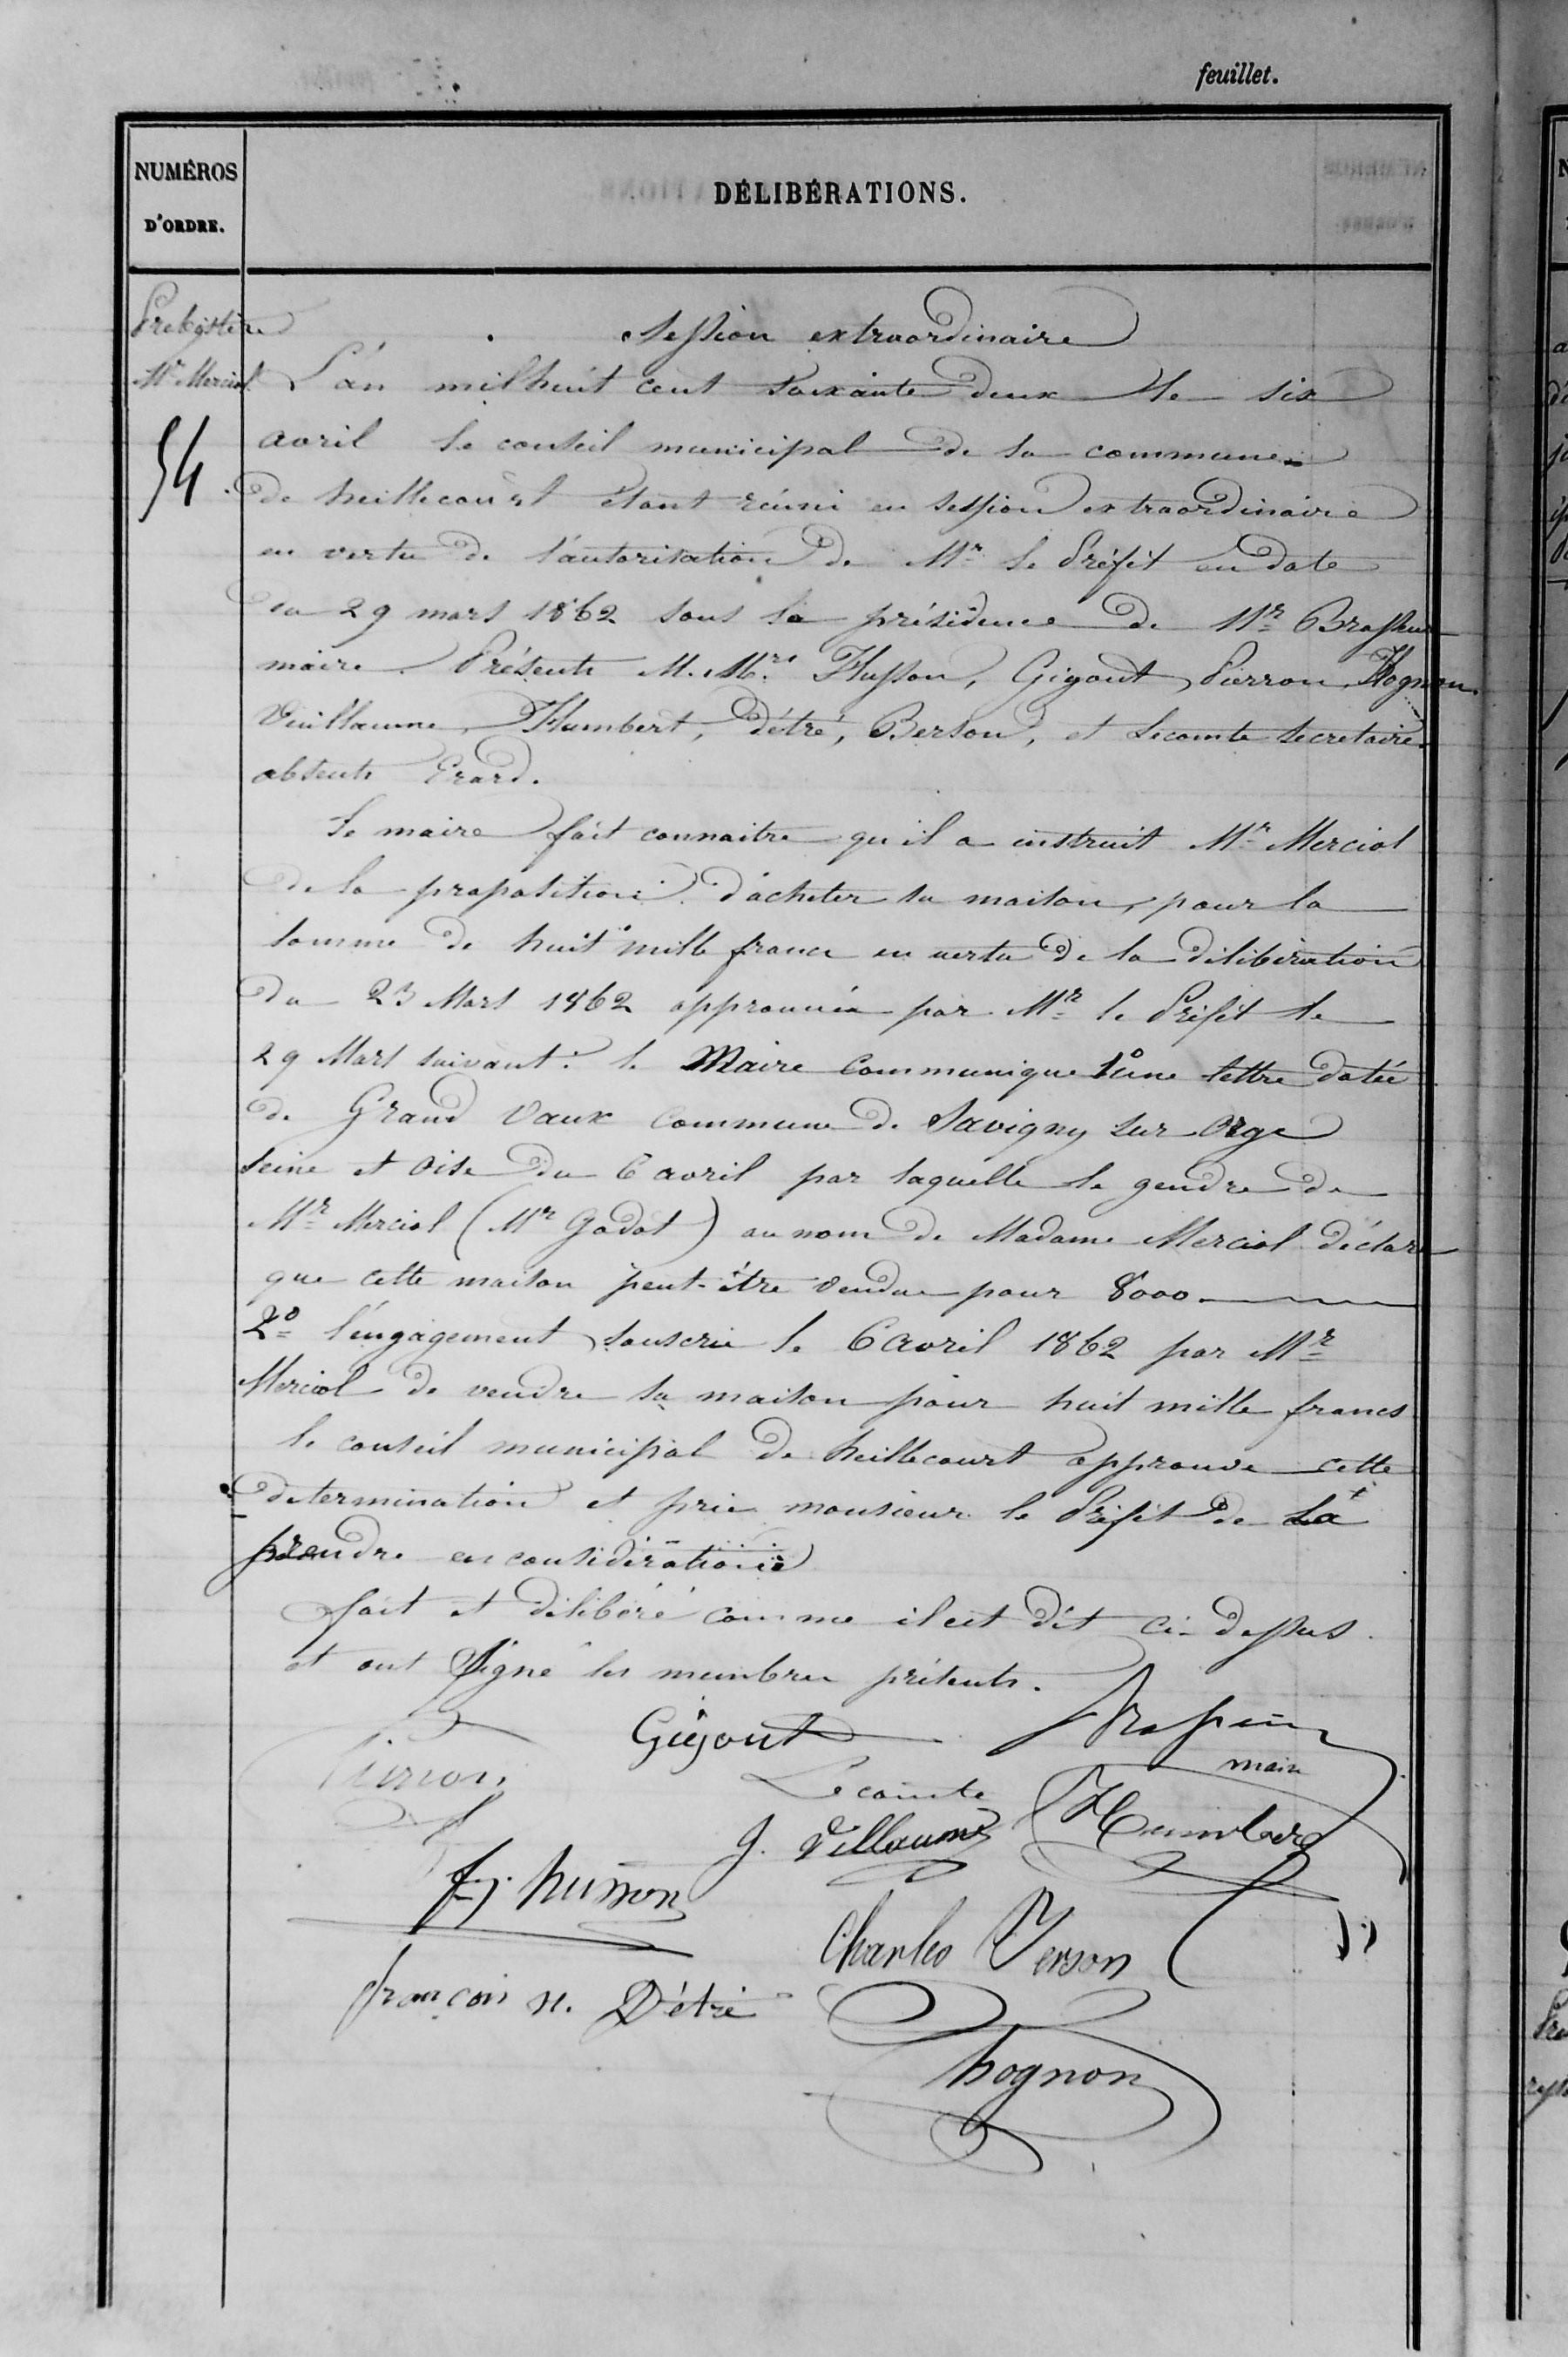 feuillet.
NUMÉROS
D'ORDRE.
DÉLIBÉRATIONS.
Prebystère
Mr Merciol
54
Session extraordinaire
L'an mil huit cent soixante deux le six
avril le conseil municipal de la commune
de heillecourt étant réuni en session extraordinaire
en vertu de l'autorisation de Mr le Préfet en date
du 29 mars 1862 sous la présidence de Mr Brasseur
maire. Présents M. Mrs Husson, Gigout, Pierron, Hognon
Vuillaume, Humbert, détré, Berson, et Lecomte secretaire
absents Erard.
Le maire fait connaitre qu'il a instruit Mr Merciol
de la proposition d'acheter sa maison, pour la
somme de huit mille francs en vertu de la délibération
du 23 Mars 1862 approuvée par Mr le Préfet le
29 Mars suivant. le Maire communique 1° une lettre datée
de Grand Vaux commune de Savigny sur Orge
Seine et Oise du 6 avril par laquelle le gendre de
Mr Merciol (Mr Godot) au nom de Madame Merciol déclare
que cette maison peut-être vendue pour 8000
2° l'engagement souscrit le 6 avril 1862 par Mr
Merciol de vendre sa maison pour huit mille francs
le conseil municipal de heillecourt approuve cette
determination et prie monsieur le Préfet de la
prendre en considération
fait et délibéré comme il est dit ci-dessus
et ont signé les membres présents.
Gigout Brasseur
maire
Pierron
Lecomte
Humbert
J. Villaume
f. j. husson
Charles Berson
françois n. Détré
hognon